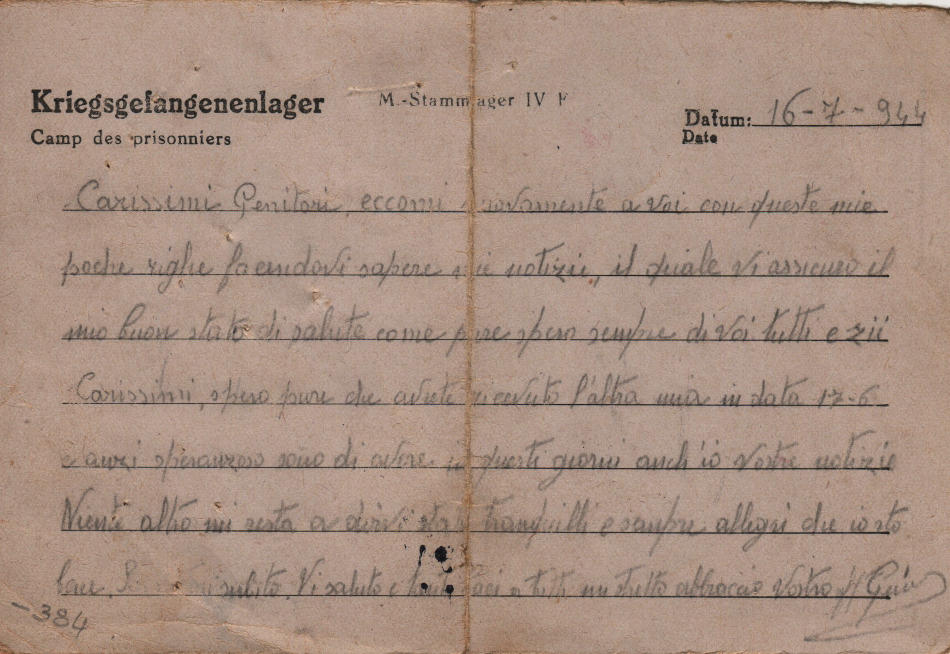 Kriegsgefangenenlager
M.-Stammlager IV F
Datum: 16-7-944
Camp des prisonniers
Date
Carissimi Genitori, eccomi nuovamente a voi con queste mie
poche righe facendovi sapere mie notizie, il quale vi assicuro il
mio buon stato di salute come pure spero sempre di voi tutti e zii
Carissimi, spero pure che avrete ricevuto l'altra mia in data 17-6
e anzi speranzoso sono di avere in questi giorni anch'io vostre notizie
Niente altro mi resta a dirvi state tranquilli e sempre allegri che io sto
bene. subito. Vi saluto e baci a tutti un stretto abbraccio vostro
-384